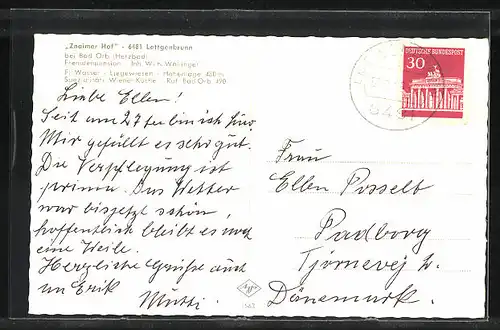 „Znaimer Hof" - 6481 Lettgenbrunn
bei Bad Orb (Herzbad)
Fremdenpension
Fl. Wasser - Liegewiesen - Höhenlage
Spezialität: Wiener Küche Ruf Bad Orb 490
Liebe Ellen!
Seit am 27ten bin ich hier.
Mir gefällt es sehr gut.
Die Verpflegung ist
prima. Das Wetter
war bis jetzt schön,
hoffentlich bleibt es noch
eine Weile.
Herzliche Grüße auch
an Erik
Mutti.
DEUTSCHE BUNDESPOST
30
Frau
Ellen Posselt
Padborg
Tjörnevej 2.
Dänemark.